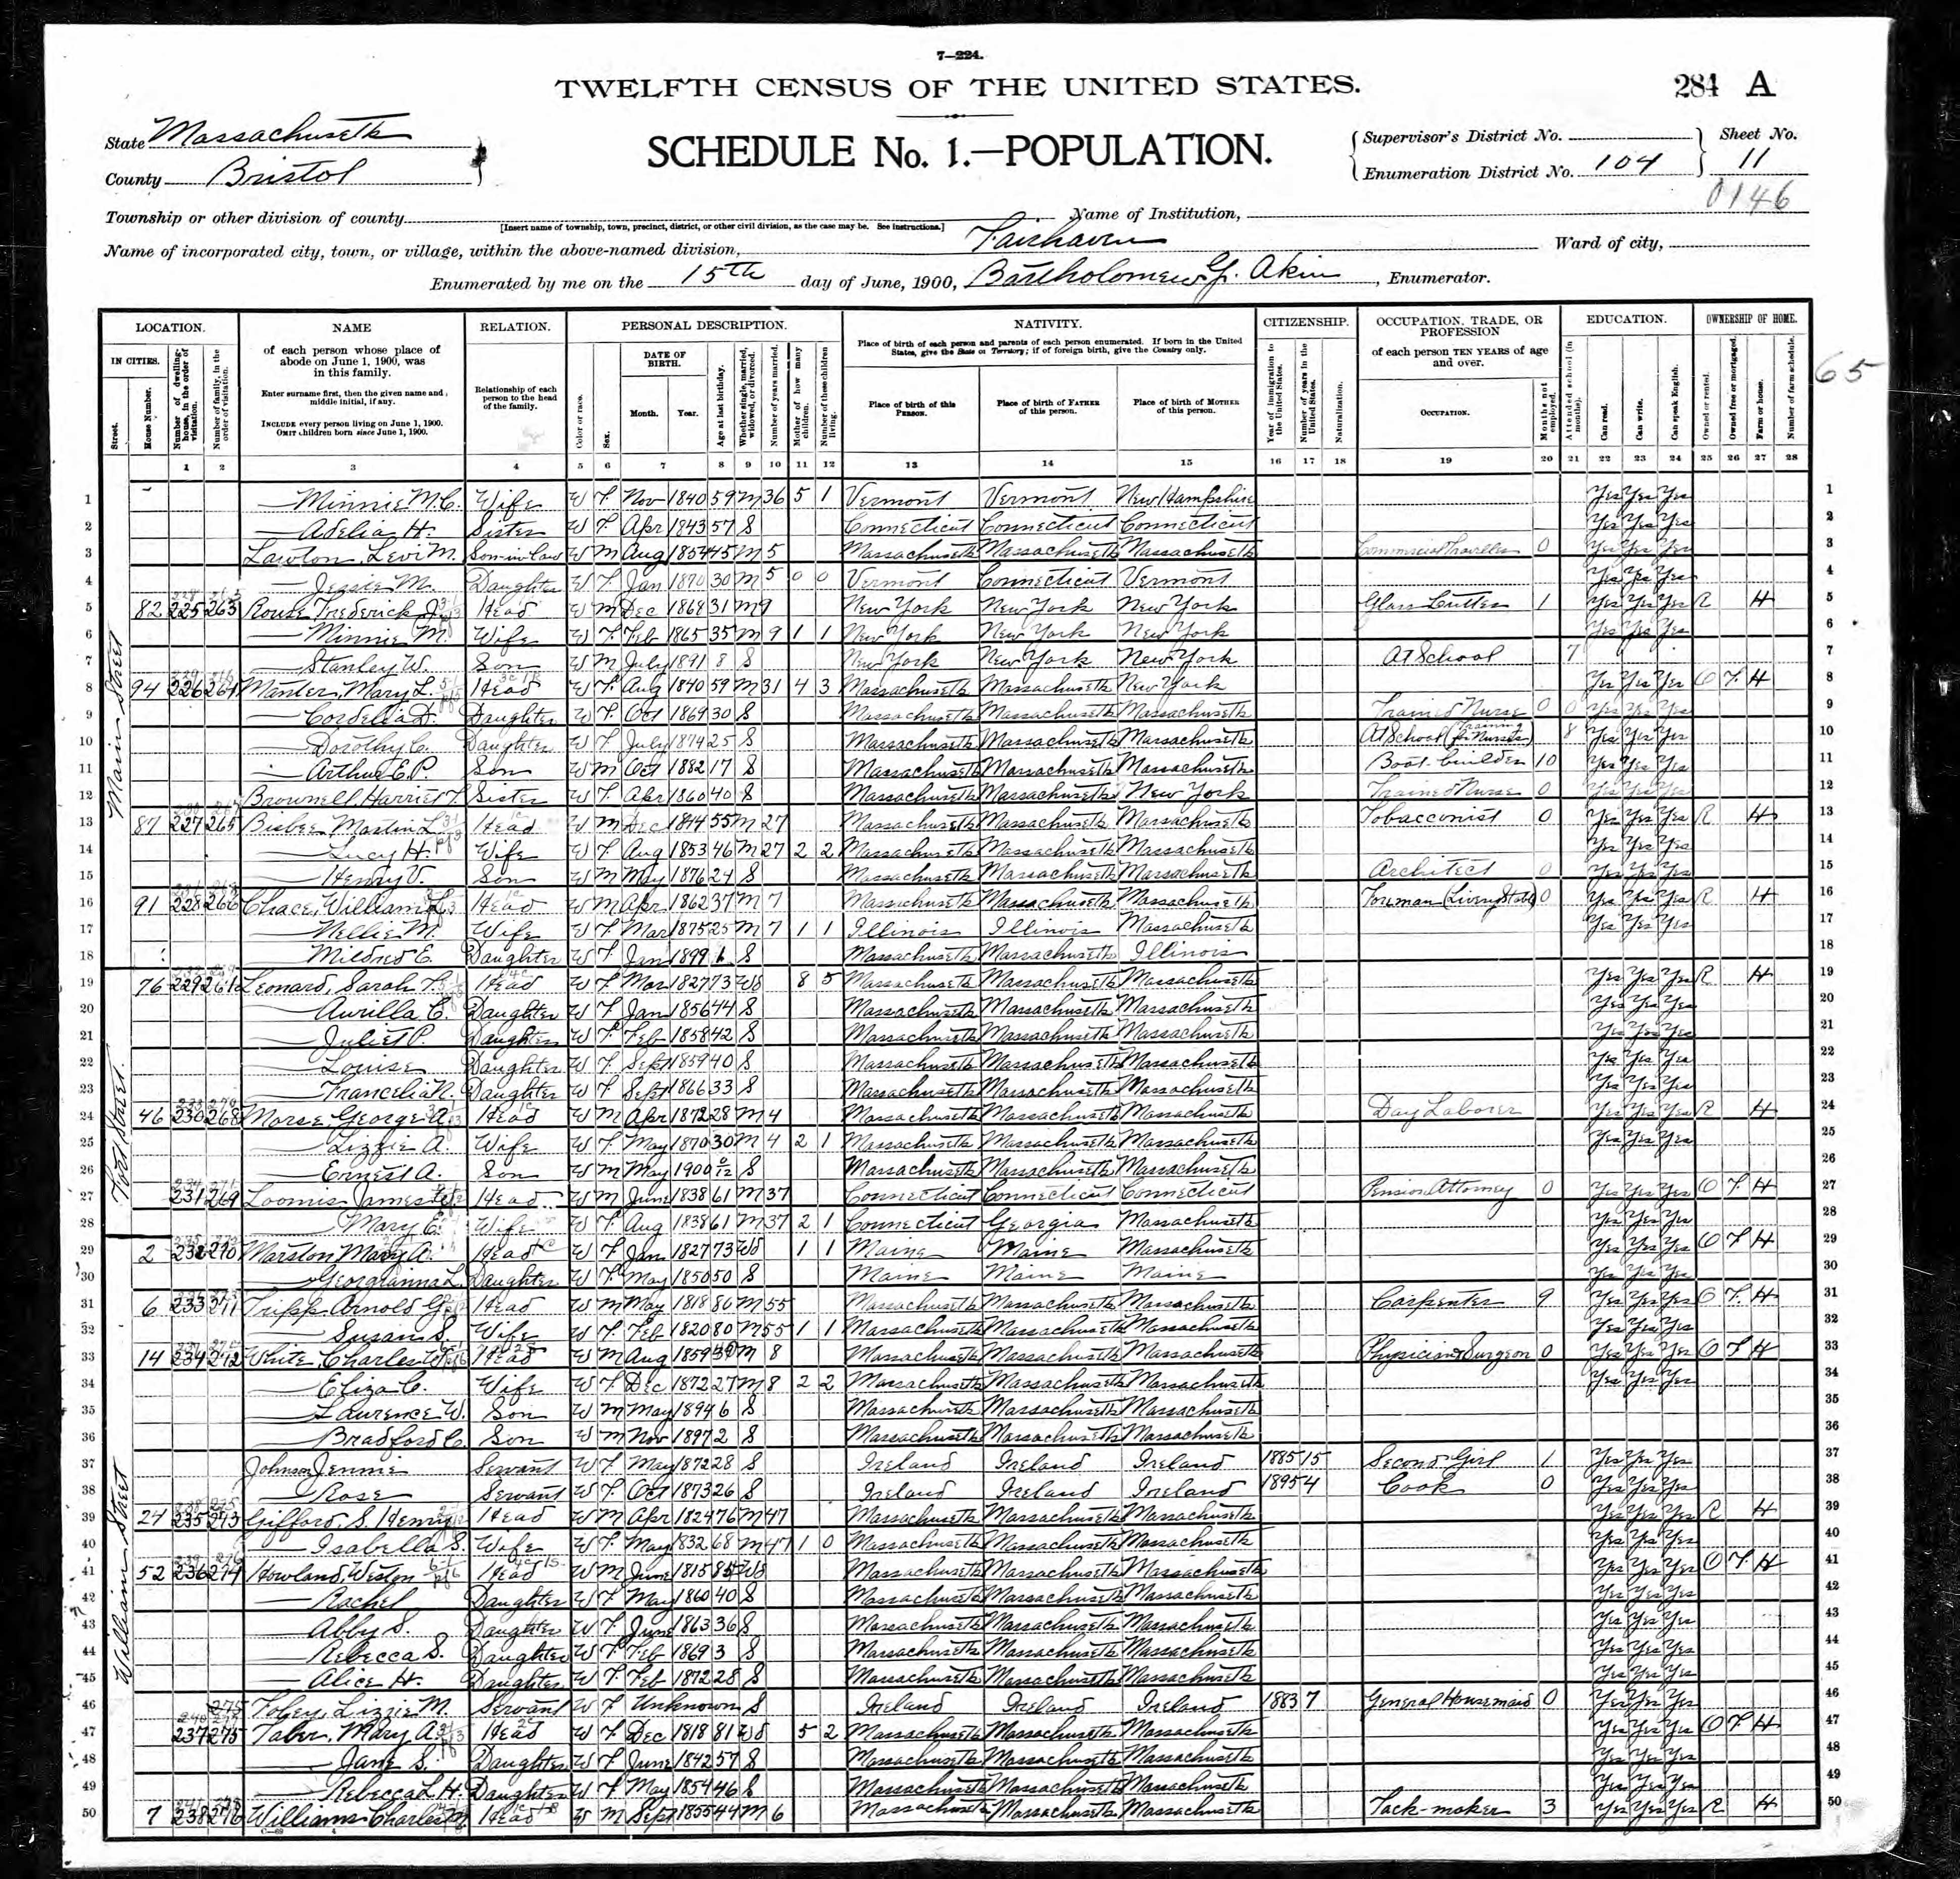 7—224.
TWELFTH CENSUS OF THE UNITED STATES.
284 A
State Massachusetts
SCHEDULE No. 1.—POPULATION.
Supervisor's District No.
Sheet No.
County Bristol
Enumeration District No. 104
11
0146
Township or other division of county
[Insert name of township, town, precinct, district, or other civil division, as the case may be. See instructions.]
Name of Institution,
Name of incorporated city, town, or village, within the above-named division, Fairhaven
Ward of city,
Enumerated by me on the 15th day of June, 1900, Bartholomew G. Akin, Enumerator.
65
LOCATION. NAME RELATION. PERSONAL DESCRIPTION. NATIVITY. CITIZENSHIP. OCCUPATION, TRADE, OR PROFESSION EDUCATION. OWNERSHIP OF HOME.
IN CITIES.
Street.
House Number.
Number of dwelling-house, in the order of visitation.
Number of family, in the order of visitation.
of each person whose place of abode on June 1, 1900, was in this family.
Enter surname first, then the given name and middle initial, if any.
INCLUDE every person living on June 1, 1900.
OMIT children born since June 1, 1900.
Relationship of each person to the head of the family.
Color or race.
Sex.
DATE OF BIRTH.
Month. Year.
Age at last birthday.
Whether single, married, widowed, or divorced.
Number of years married.
Mother of how many children.
Number of these children living.
Place of birth of each person and parents of each person enumerated. If born in the United States, give the State or Territory; if of foreign birth, give the Country only.
Place of birth of this PERSON.
Place of birth of FATHER of this person.
Place of birth of MOTHER of this person.
Year of immigration to the United States.
Number of years in the United States.
Naturalization.
of each person TEN YEARS of age and over.
OCCUPATION.
Months not employed.
Attended school (in months).
Can read.
Can write.
Can speak English.
Owned or rented.
Owned free or mortgaged.
Farm or house.
Number of farm schedule.
1 2 3 4 5 6 7 8 9 10 11 12 13 14 15 16 17 18 19 20 21 22 23 24 25 26 27 28
Main Street
1 — Minnie M.C. Wife W F Nov 1840 59 M 36 5 1 Vermont Vermont New Hampshire Yes Yes Yes 1
2 — Adelia H. Sister W F Apr 1843 57 S Connecticut Connecticut Connecticut Yes Yes Yes 2
3 Lawton, Levi M. Son-in-law W M Aug 1854 45 M 5 Massachusetts Massachusetts Massachusetts Commercial Traveller 0 Yes Yes Yes 3
4 — Jessie M. Daughter W F Jan 1870 30 M 5 0 0 Vermont Connecticut Vermont Yes Yes Yes 4
5 82 225 263 Rouse Frederick J. Head W M Dec 1868 31 M 9 New York New York New York Glass Cutter 1 Yes Yes Yes R H 5
6 — Minnie M. Wife W F Feb 1865 35 M 9 1 1 New York New York New York Yes Yes Yes 6
7 — Stanley W. Son W M July 1891 8 S New York New York New York At School 7 7
8 94 226 264 Manter, Mary L. Head W F Aug 1840 59 M 31 4 3 Massachusetts Massachusetts New York Yes Yes Yes O F H 8
9 — Cordelia D. Daughter W F Oct 1869 30 S Massachusetts Massachusetts Massachusetts Trained Nurse 0 0 Yes Yes Yes 9
10 — Dorothy C. Daughter W F July 1874 25 S Massachusetts Massachusetts Massachusetts At School (Training for Nurses) 8 Yes Yes Yes 10
11 — Arthur E.P. Son W M Oct 1882 17 S Massachusetts Massachusetts Massachusetts Boat builder 10 Yes Yes Yes 11
12 Brownell, Harriet T. Sister W F Apr 1860 40 S Massachusetts Massachusetts New York Trained Nurse 0 Yes Yes Yes 12
13 87 227 265 Bisbee Martin L. Head W M Dec 1844 55 M 27 Massachusetts Massachusetts Massachusetts Tobacconist 0 Yes Yes Yes R H 13
14 — Lucy H. Wife W F Aug 1853 46 M 27 2 2 Massachusetts Massachusetts Massachusetts Yes Yes Yes 14
15 — Henry V. Son W M May 1876 24 S Massachusetts Massachusetts Massachusetts Architect 0 Yes Yes Yes 15
16 91 228 266 Chace, William L. Head W M Apr 1862 37 M 7 Massachusetts Massachusetts Massachusetts Foreman (Living Stable) 0 Yes Yes Yes R H 16
17 — Nellie M. Wife W F Mar 1875 25 M 7 1 1 Illinois Illinois Massachusetts Yes Yes Yes 17
18 — Mildred E. Daughter W F Jan 1899 1 S Massachusetts Massachusetts Illinois 18
Fort Street.
19 76 229 267 Leonard, Sarah T. Head W F Mar 1827 73 Wd 8 5 Massachusetts Massachusetts Massachusetts Yes Yes Yes R H 19
20 — Aurilla C. Daughter W F Jan 1856 44 S Massachusetts Massachusetts Massachusetts Yes Yes Yes 20
21 — Juliet P. Daughter W F Feb 1858 42 S Massachusetts Massachusetts Massachusetts Yes Yes Yes 21
22 — Louise Daughter W F Sept 1859 40 S Massachusetts Massachusetts Massachusetts Yes Yes Yes 22
23 — Francelia N. Daughter W F Sept 1866 33 S Massachusetts Massachusetts Massachusetts Yes Yes Yes 23
24 46 230 268 Morse, George A. Head W M Apr 1872 28 M 4 Massachusetts Massachusetts Massachusetts Day Laborer Yes Yes Yes R H 24
25 — Lizzie A. Wife W F May 1870 30 M 4 2 1 Massachusetts Massachusetts Massachusetts Yes Yes Yes 25
26 — Ernest A. Son W M May 1900 0/12 S Massachusetts Massachusetts Massachusetts 26
27 231 269 Loomis James Head W M June 1838 61 M 37 Connecticut Connecticut Connecticut Pension Attorney 0 Yes Yes Yes O F H 27
28 — Mary E. Wife W F Aug 1838 61 M 37 2 1 Connecticut Georgia Massachusetts Yes Yes Yes 28
William Street
29 2 232 270 Marston Mary A. Head W F Jan 1827 73 Wd 1 1 Maine Maine Massachusetts Yes Yes Yes O F H 29
30 — Georgianna L. Daughter W F May 1850 50 S Maine Maine Maine Yes Yes Yes 30
31 6 233 271 Tripp Arnold G. Head W M May 1818 86 M 55 Massachusetts Massachusetts Massachusetts Carpenter 9 Yes Yes Yes O F H 31
32 — Susan S. Wife W F Feb 1820 80 M 55 1 1 Massachusetts Massachusetts Massachusetts Yes Yes Yes 32
33 14 234 272 White, Charles W. Head W M Aug 1859 M 8 Massachusetts Massachusetts Massachusetts Physician & Surgeon 0 Yes Yes Yes O F H 33
34 — Eliza C. Wife W F Dec 1872 27 M 8 2 2 Massachusetts Massachusetts Massachusetts Yes Yes Yes 34
35 — Laurence W. Son W M May 1894 6 S Massachusetts Massachusetts Massachusetts 35
36 — Bradford C. Son W M Nov 1897 2 S Massachusetts Massachusetts Massachusetts 36
37 Johnson Jennie Servant W F May 1872 28 S Ireland Ireland Ireland 1885 15 Second Girl 1 Yes Yes Yes 37
38 — Rose Servant W F Oct 1873 26 S Ireland Ireland Ireland 1895 4 Cook 0 Yes Yes Yes 38
39 24 235 273 Gifford, S. Henry Head W M Apr 1824 76 M 47 Massachusetts Massachusetts Massachusetts Yes Yes Yes R H 39
40 — Isabella S. Wife W F May 1832 68 M 47 1 0 Massachusetts Massachusetts Massachusetts Yes Yes Yes 40
41 52 236 274 Howland, Weston Head W M June 1815 84 Wd Massachusetts Massachusetts Massachusetts Yes Yes Yes O F H 41
42 — Rachel Daughter W F May 1860 40 S Massachusetts Massachusetts Massachusetts Yes Yes Yes 42
43 — Abby S. Daughter W F June 1863 36 S Massachusetts Massachusetts Massachusetts Yes Yes Yes 43
44 — Rebecca S. Daughter W F Feb 1869 3 S Massachusetts Massachusetts Massachusetts Yes Yes Yes 44
45 — Alice H. Daughter W F Feb 1872 28 S Massachusetts Massachusetts Massachusetts Yes Yes Yes 45
46 Foley, Lizzie M. Servant W F Unknown S Ireland Ireland Ireland 1883 7 General Housemaid 0 Yes Yes Yes 46
47 237 275 Taber, Mary A. Head W F Dec 1818 81 Wd 5 2 Massachusetts Massachusetts Massachusetts Yes Yes Yes O F H 47
48 — Jane S. Daughter W F June 1842 57 S Massachusetts Massachusetts Massachusetts Yes Yes Yes 48
49 — Rebecca L H. Daughter W F May 1854 46 S Massachusetts Massachusetts Massachusetts Yes Yes Yes 49
50 7 238 276 Williams Charles M. Head W M Sept 1855 44 M 6 Massachusetts Massachusetts Massachusetts Tack-maker 3 Yes Yes Yes R H 50